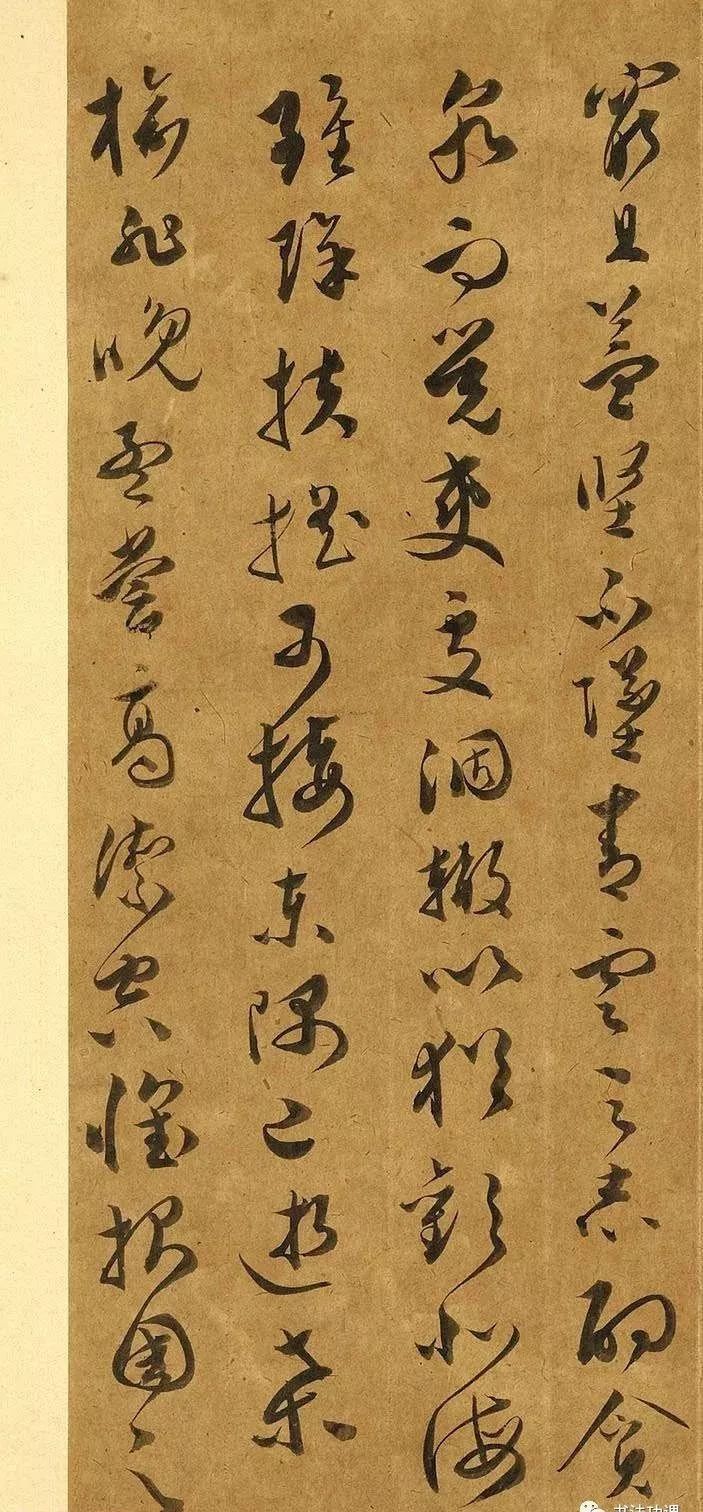 窮且益堅不墜青雲之志酌貪
泉而覺爽處涸轍以猶歡北海
雖賒扶搖可接東隅已逝桑
榆非晚孟嘗高潔空懷報國之
书法功课